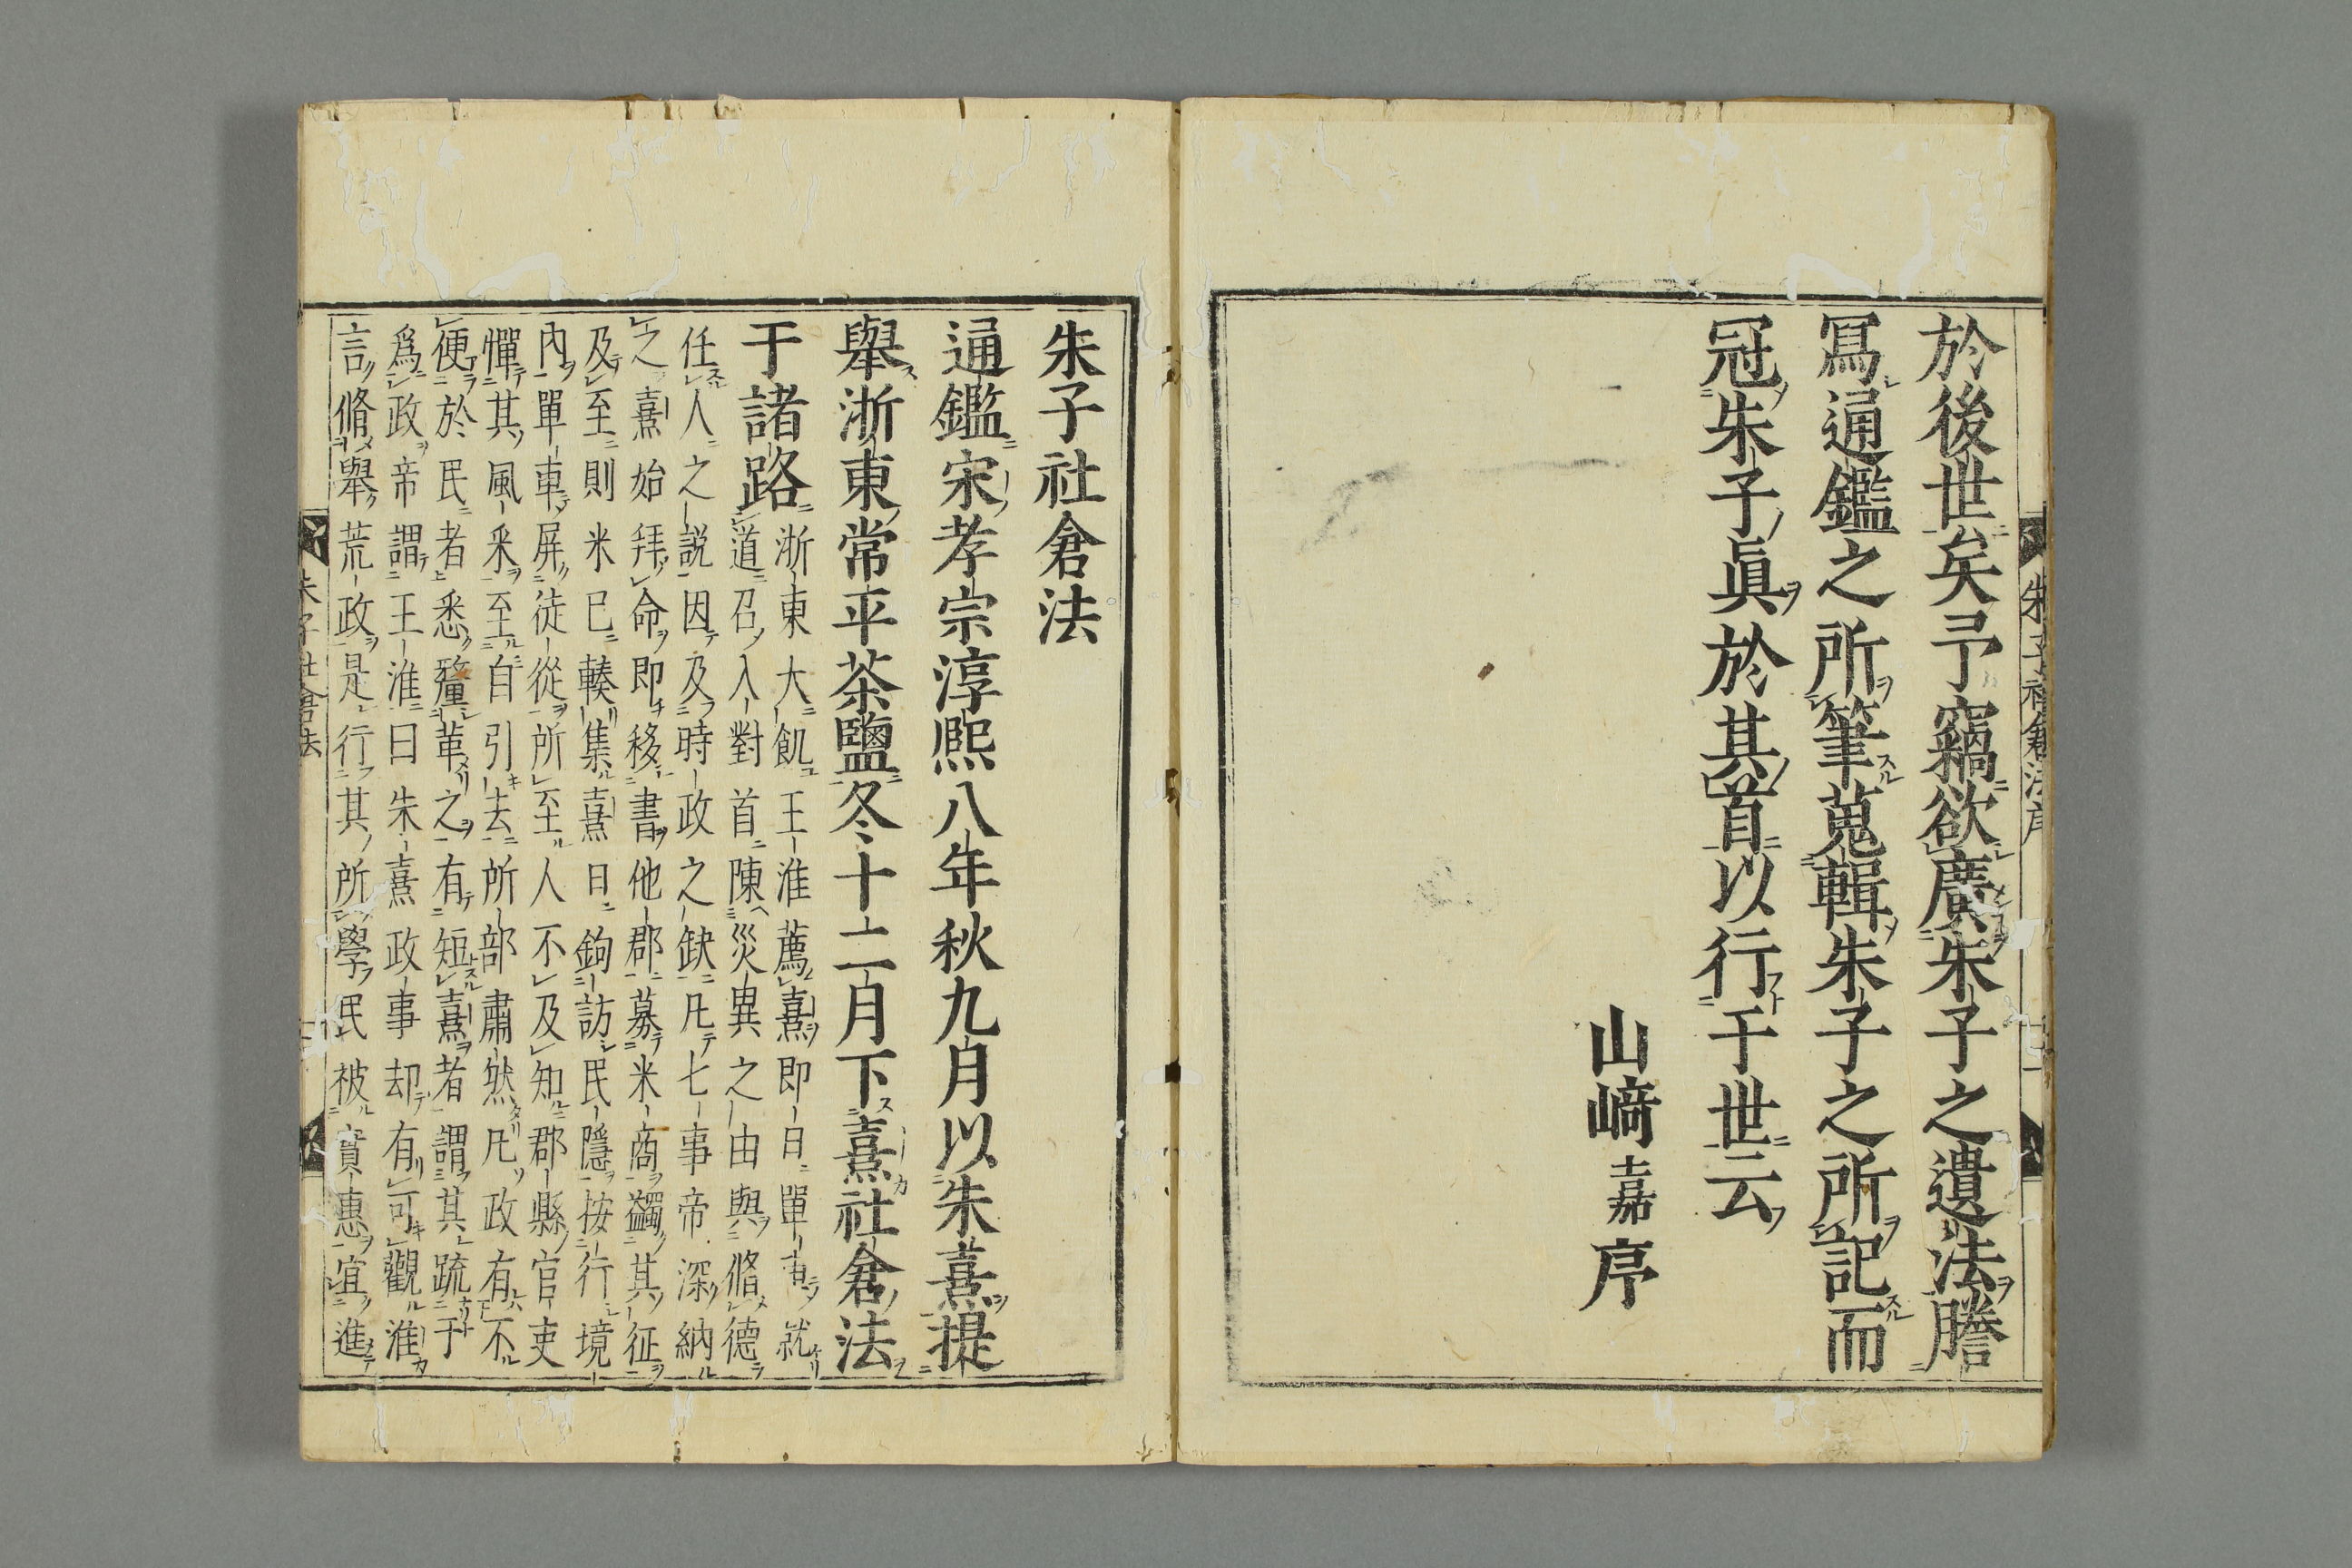 於後世矣予竊欲廣朱子之遺法謄
冩通鑑之所筆蒐輯朱子之所記而
冠朱子眞於其首以行于世云
山﨑嘉序
朱子社倉法
通鑑宋孝宗淳熈八年秋九月以朱熹提
舉浙東常平茶鹽冬十二月下熹社倉法
于諸路
浙東大飢王淮薦熹即日單車就
道召入對首陳災異之由與脩德
任人之説因及時政之缺凡七事帝深納
之熹始拜命即移書他郡募米商蠲其征
及至則米已輳集熹日鉤訪民隱按行境
內單車屏徒從所至人不及知郡縣官吏
憚其風采至自引去所部肅然凡政有不
便於民者悉釐革之有短熹者謂其疏于
爲政帝謂王淮曰朱熹政事却有可觀淮
言脩舉荒政是行其所學民被實惠宜進
朱子社倉法